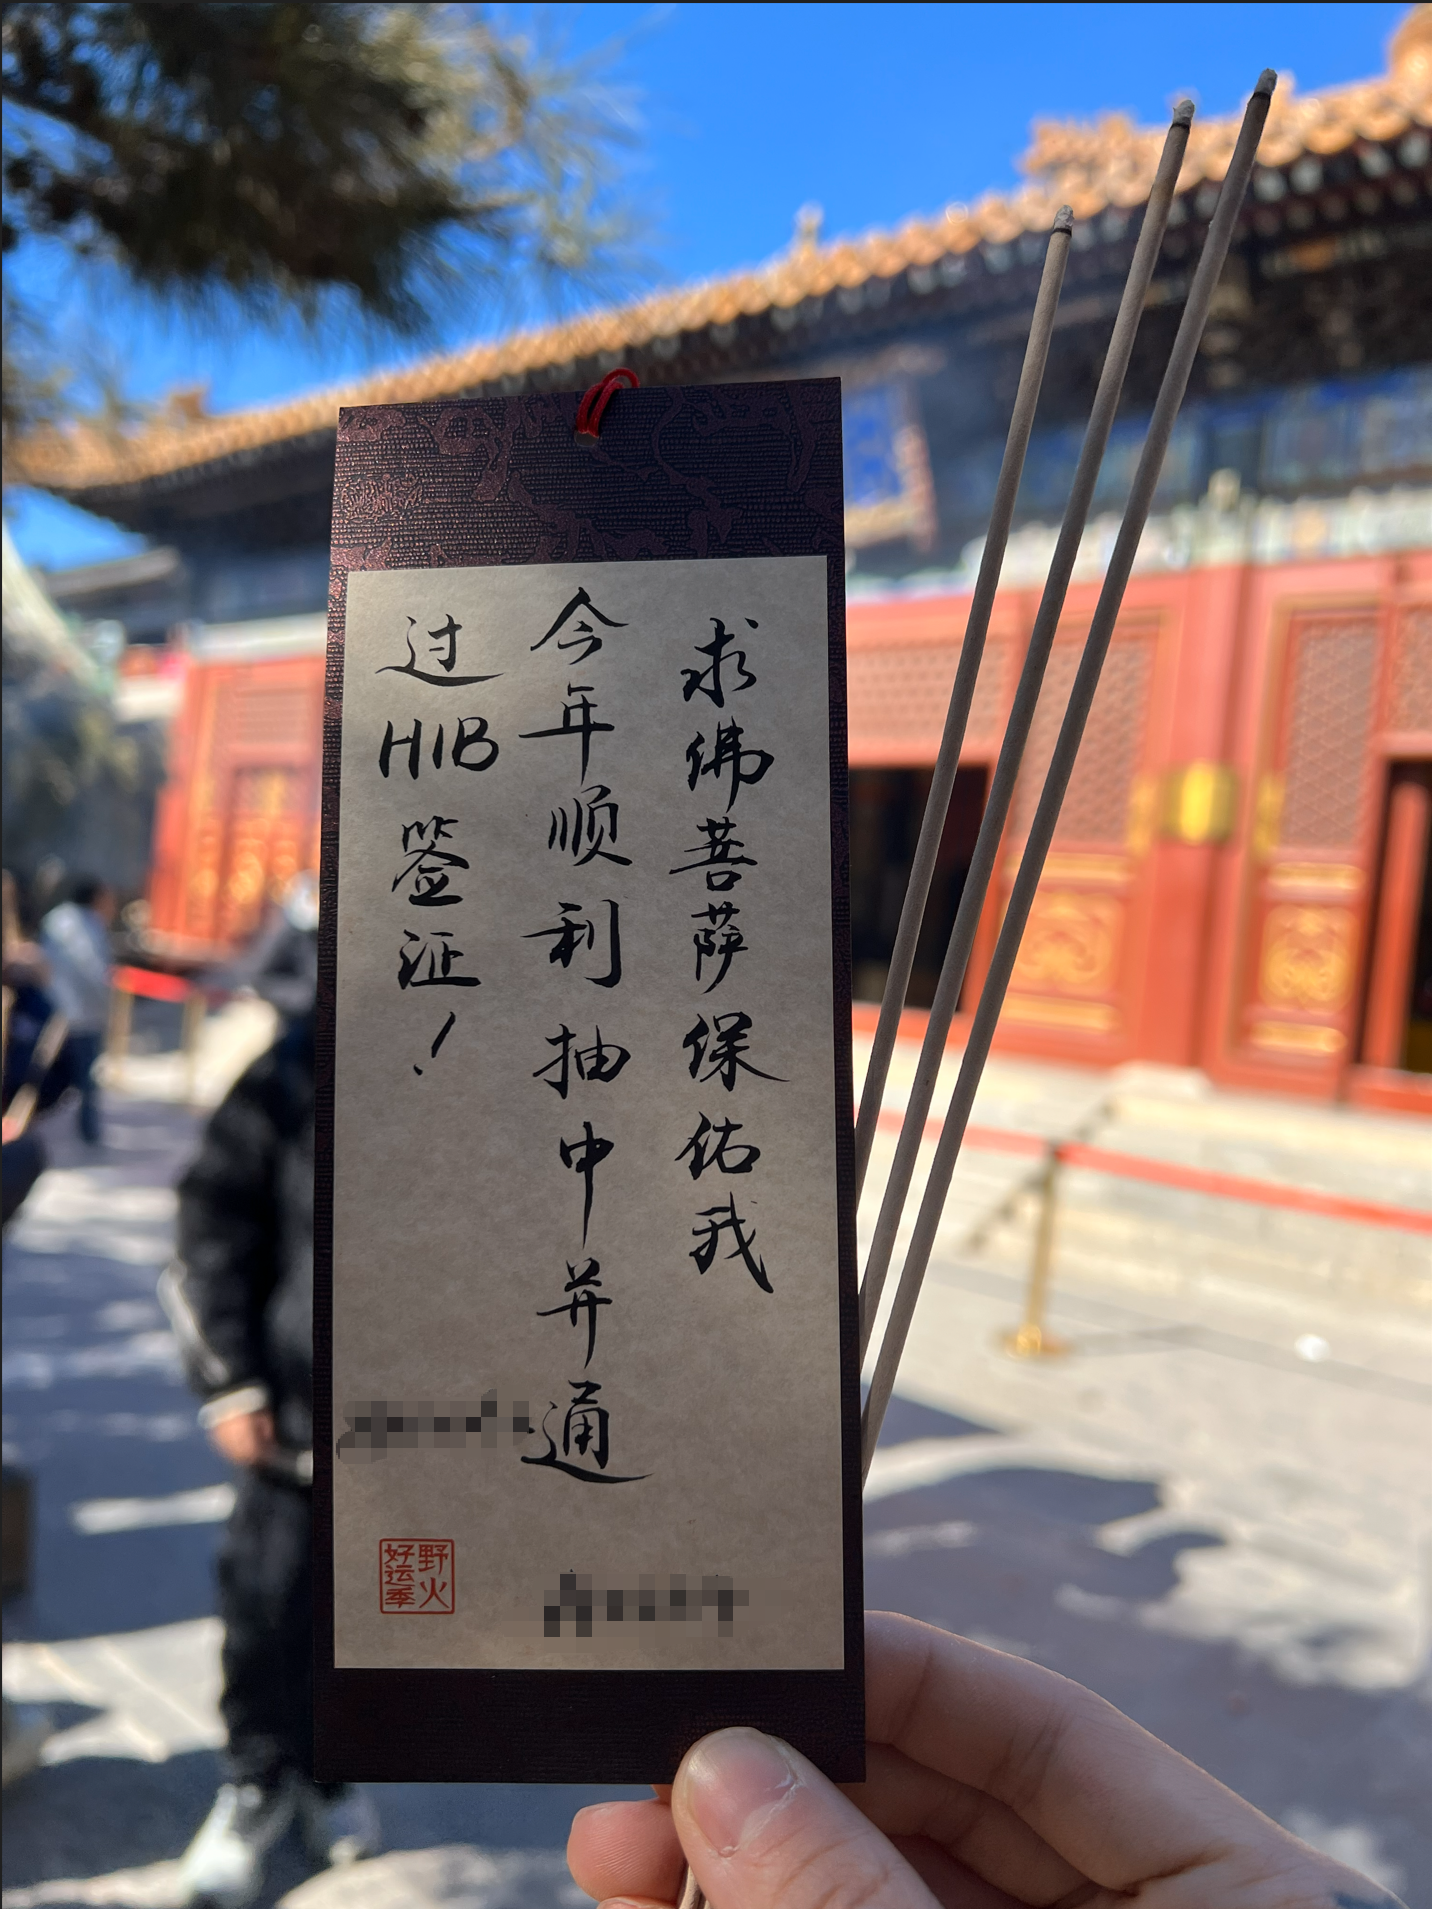 求佛菩萨保佑我
今年顺利抽中并通
过H1B签证！
野火
好运季